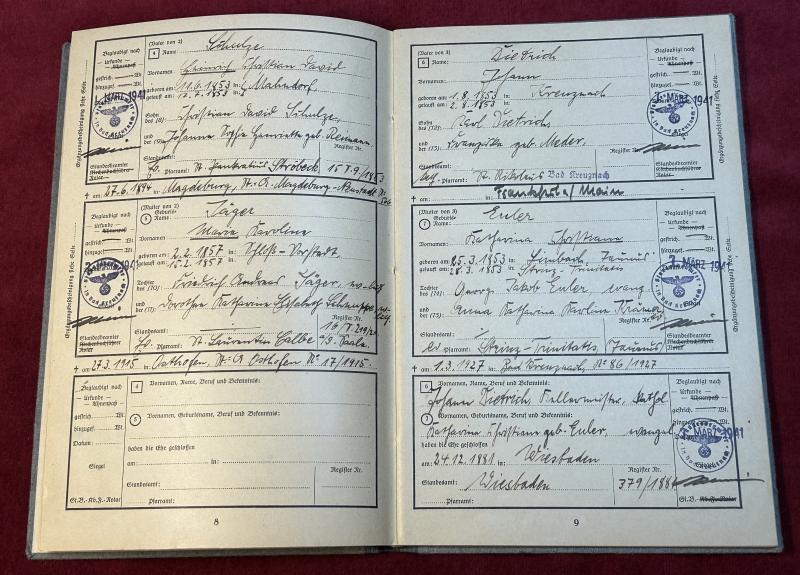 (Vater von 2) Schulze
4 Name
Vornamen Heinrich Christian David
geboren am 11.6.1853 in Mahndorf
getauft am 1853
Sohn des (8) Christian David Schulze,
und der (9) Johanna Sophie Henriette geb. Reimann
Register Nr.
Standesamt:
Pfarramt: St. Pankratius Ströbeck, 1853
† am: 27.6.1894 in: Magdeburg, St.A. Magdeburg-Neustadt
Beglaubigt nach
Urkunde
Ahnenpaß
gestrich. Wt.
hinzugef. Wt.
MÄRZ 1941
Standesbeamter
Kirchenbuchführer
Notar
Ergänzungsbescheinigung siehe Seite
(Mutter von 2) Jäger
5 Geburts-Name:
Vornamen: Marie Karoline
geboren am 2.2.1857 in Schloß-Vorstadt,
getauft am 15.2.1857
Tochter des (10) Friedrich Andreas Jäger,
und der (11) Dorothee Katharine Elisabeth
Register Nr.
Standesamt:
Pfarramt: St. Laurentii Calbe a/S. Saale
† am: 27.3.1915 in: Osthofen, St.A Osthofen No 17/1915.
Beglaubigt nach
Urkunde
Ahnenpaß
gestrich. Wt.
hinzugef. Wt.
MÄRZ 1941
Standesbeamter
Kirchenbuchführer
Notar
Ergänzungsbescheinigung siehe Seite
4 Vornamen, Name, Beruf und Bekenntnis:
5 Vornamen, Geburtsname, Beruf und Bekenntnis:
haben die Ehe geschlossen
am: in:
Register Nr.
Standesamt:
Pfarramt:
Beglaubigt nach
Urkunde
Ahnenpaß
gestrich. Wt.
hinzugef. Wt.
Datum:
Siegel
St.B.-Kb.F.-Notar
8
(Vater von 3) Dietrich
6 Name
Vornamen: Johann
geboren am 1.8.1853 in Kreuznach
getauft am 2.8.1853
Sohn des (12) Karl Dietrich,
und der (13) Evangelika geb. Meder.
Register Nr.
Standesamt:
kath. Pfarramt: St. Nikolus Bad Kreuznach
† am: in: Frankfurt a/Main
Beglaubigt nach
Urkunde
Ahnenpaß
gestrich. Wt.
hinzugef. Wt.
MÄRZ 1941
Standesbeamter
Kirchenbuchführer
Notar
Ergänzungsbescheinigung siehe Seite
(Mutter von 3) Euler
7 Geburts-Name:
Vornamen: Katharina Christiane
geboren am 25.3.1853 in Limbach, Taunus
getauft am 28.3.1853 in Strinz-Trinitatis
Tochter des (14) Georg Jakob Euler, evang.
und der (15) Anna Katharina Karoline Krämer
Register Nr.
Standesamt:
ev. Pfarramt: Strinz-Trinitatis, Taunus
† am: 1927 in: Bad Kreuznach, No 86/1927
Beglaubigt nach
Urkunde
Ahnenpaß
gestrich. Wt.
hinzugef. Wt.
2. MÄRZ 1941
Standesbeamter
Kirchenbuchführer
Notar
Ergänzungsbescheinigung siehe Seite
6 Vornamen, Name, Beruf und Bekenntnis:
Johann Dietrich, Kellermeister, kathol.
7 Vornamen, Geburtsname, Beruf und Bekenntnis:
Katharina Christiane geb. Euler, evangel.
haben die Ehe geschlossen
am: 24.12.1881 in: Wiesbaden
Register Nr.
Standesamt: Wiesbaden 379/1881
Pfarramt:
Beglaubigt nach
Urkunde
Ahnenpaß
gestrich. Wt.
hinzugef. Wt.
MÄRZ 1941
St.B.-Kb.F.-Notar
9